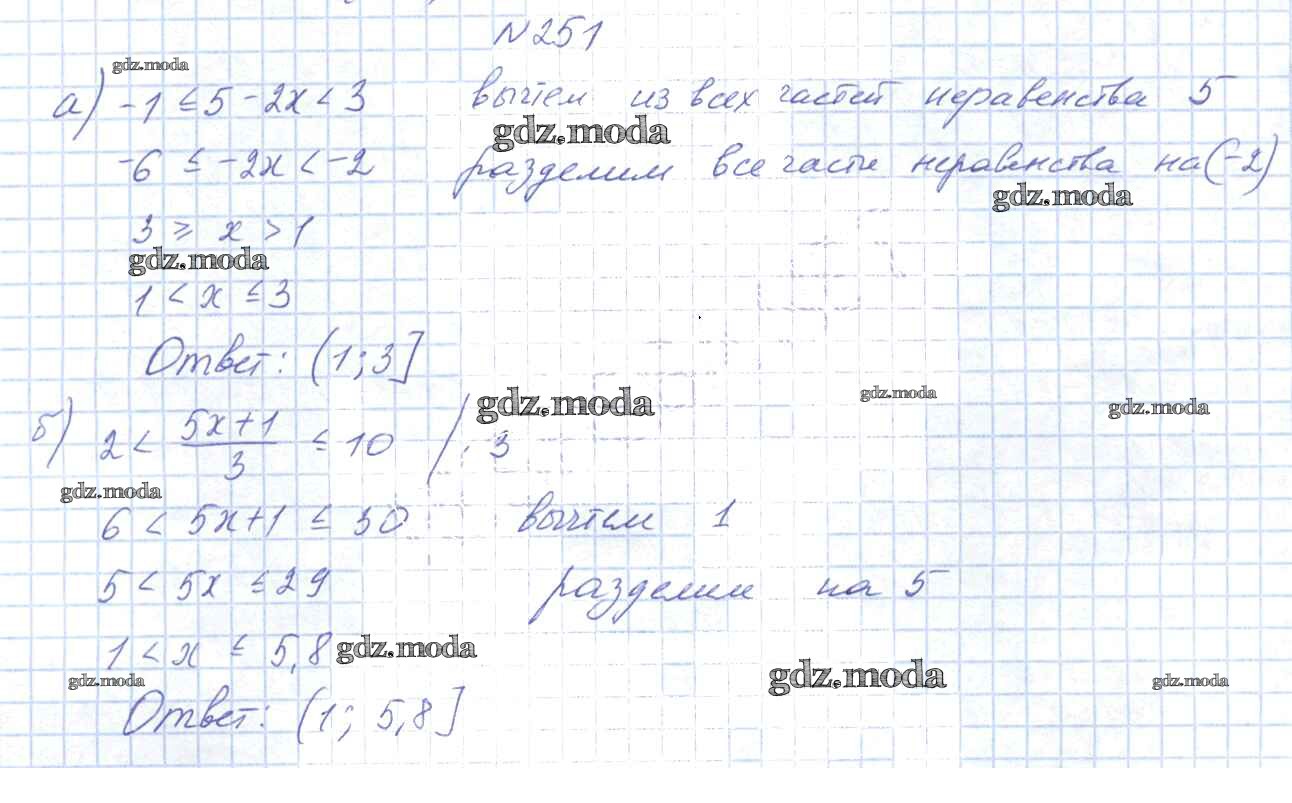 N251
gdz.moda
а) -1 ≤ 5 - 2x < 3 вычтем из всех частей неравенства 5
gdz.moda
-6 ≤ -2x < -2 разделим все части неравенства на (-2)
gdz.moda
3 ≥ x > 1
gdz.moda
1 < x ≤ 3
Ответ: (1; 3]
gdz.moda
gdz.moda
gdz.moda
б) 2 < (5x+1)/3 ≤ 10 / · 3
gdz.moda
6 < 5x+1 ≤ 30 вычтем 1
5 < 5x ≤ 29 разделим на 5
1 < x ≤ 5,8
gdz.moda
gdz.moda
gdz.moda
gdz.moda
Ответ: (1; 5,8]